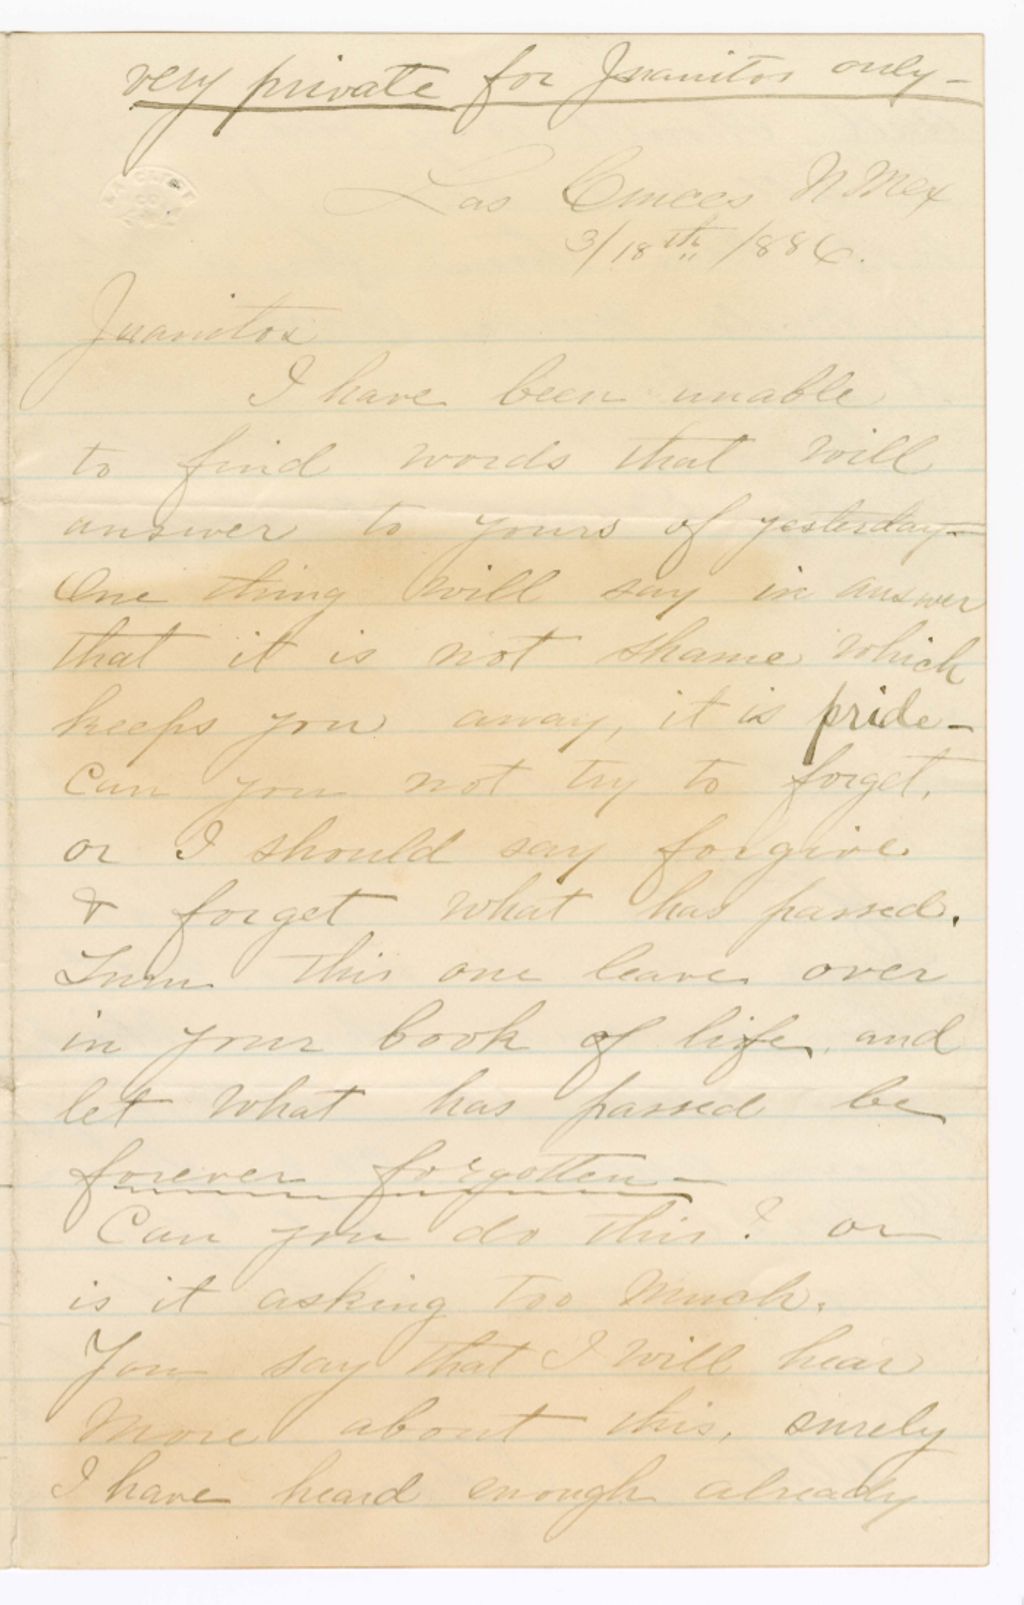 very private for Juanitos only-
Las Cruces N Mex
3/18th /886.
Juanitos
I have been unable
to find words that will
answer to yours of yesterday-
One thing will say in answer
that it is not shame which
keeps you away, it is pride-
Can you not try to forget,
or I should say forgive
& forget what has passed.
Turn this one leave over
in your book of life, and
let what has passed be
forever forgotten-
Can you do this? or
is it asking too much.
You say that I will hear
more about this, surely
I have heard enough already